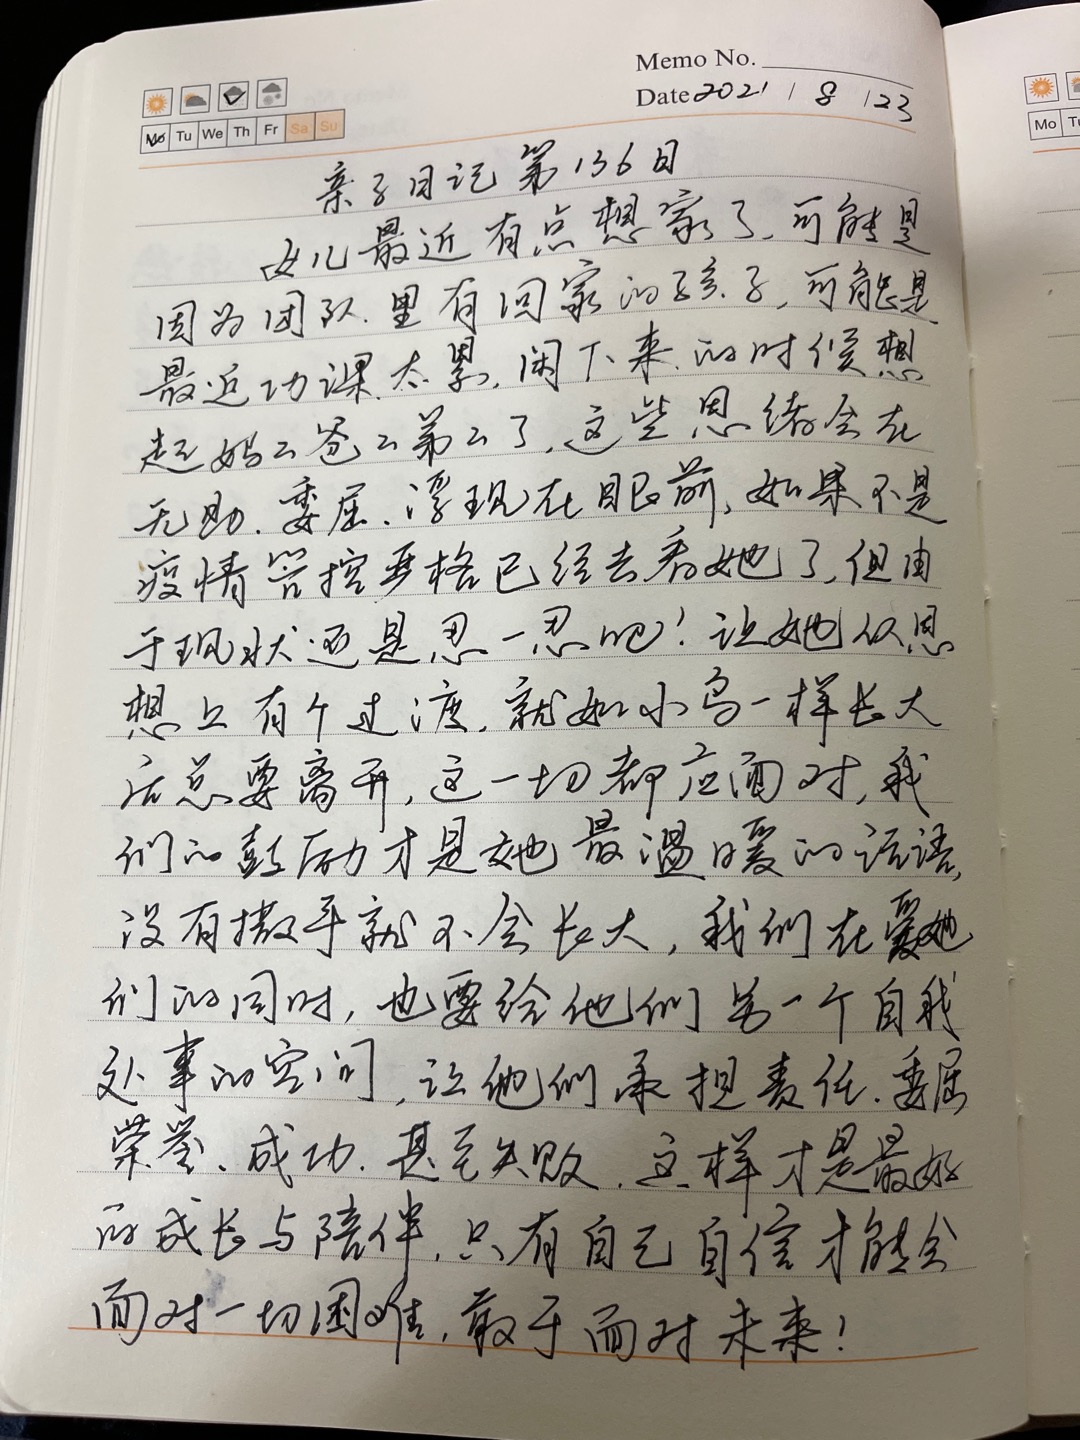 Memo No.
Date 2021 / 8 / 23
Mo Tu We Th Fr Sa Su
Mo Tu
亲子日记第136日
女儿最近有点想家了，可能是
因为团队里有回家的孩子，可能是
最近功课太累，闲下来的时候想
起妈々爸々弟々了，这些思绪会在
无助、委屈、浮现在眼前，如果不是
疫情管控严格已经去看她了，但由
于现状还是忍一忍吧！让她从思
想上有个过渡，就如小鸟一样长大
后总要离开，这一切都应面对，我
们的鼓励才是她最温暖的话语，
没有撒手就不会长大，我们在爱她
们的同时，也要给他们另一个自我
处事的空间，让他们承担责任、委屈
荣誉、成功、甚至失败，这样才是最好
的成长与陪伴，只有自己自信才能会
面对一切困难，敢于面对未来！